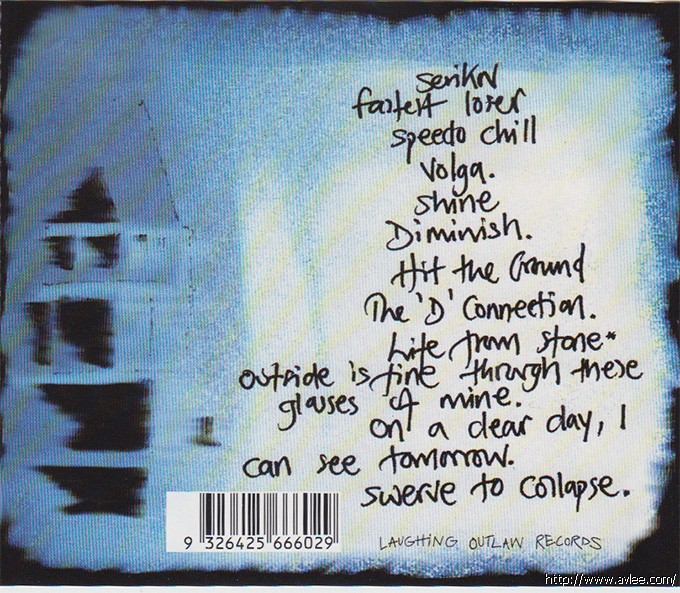 serikN
fastest loser
speedo chill
Volga.
shine
Diminish.
Hit the Ground
The 'D' Connection.
Life from stone*
outside is fine through these
glasses of mine.
on a clear day, I
can see tomorrow.
swerve to collapse.
9 326425 666029
LAUGHING OUTLAW RECORDS
http://www.avlee.com/